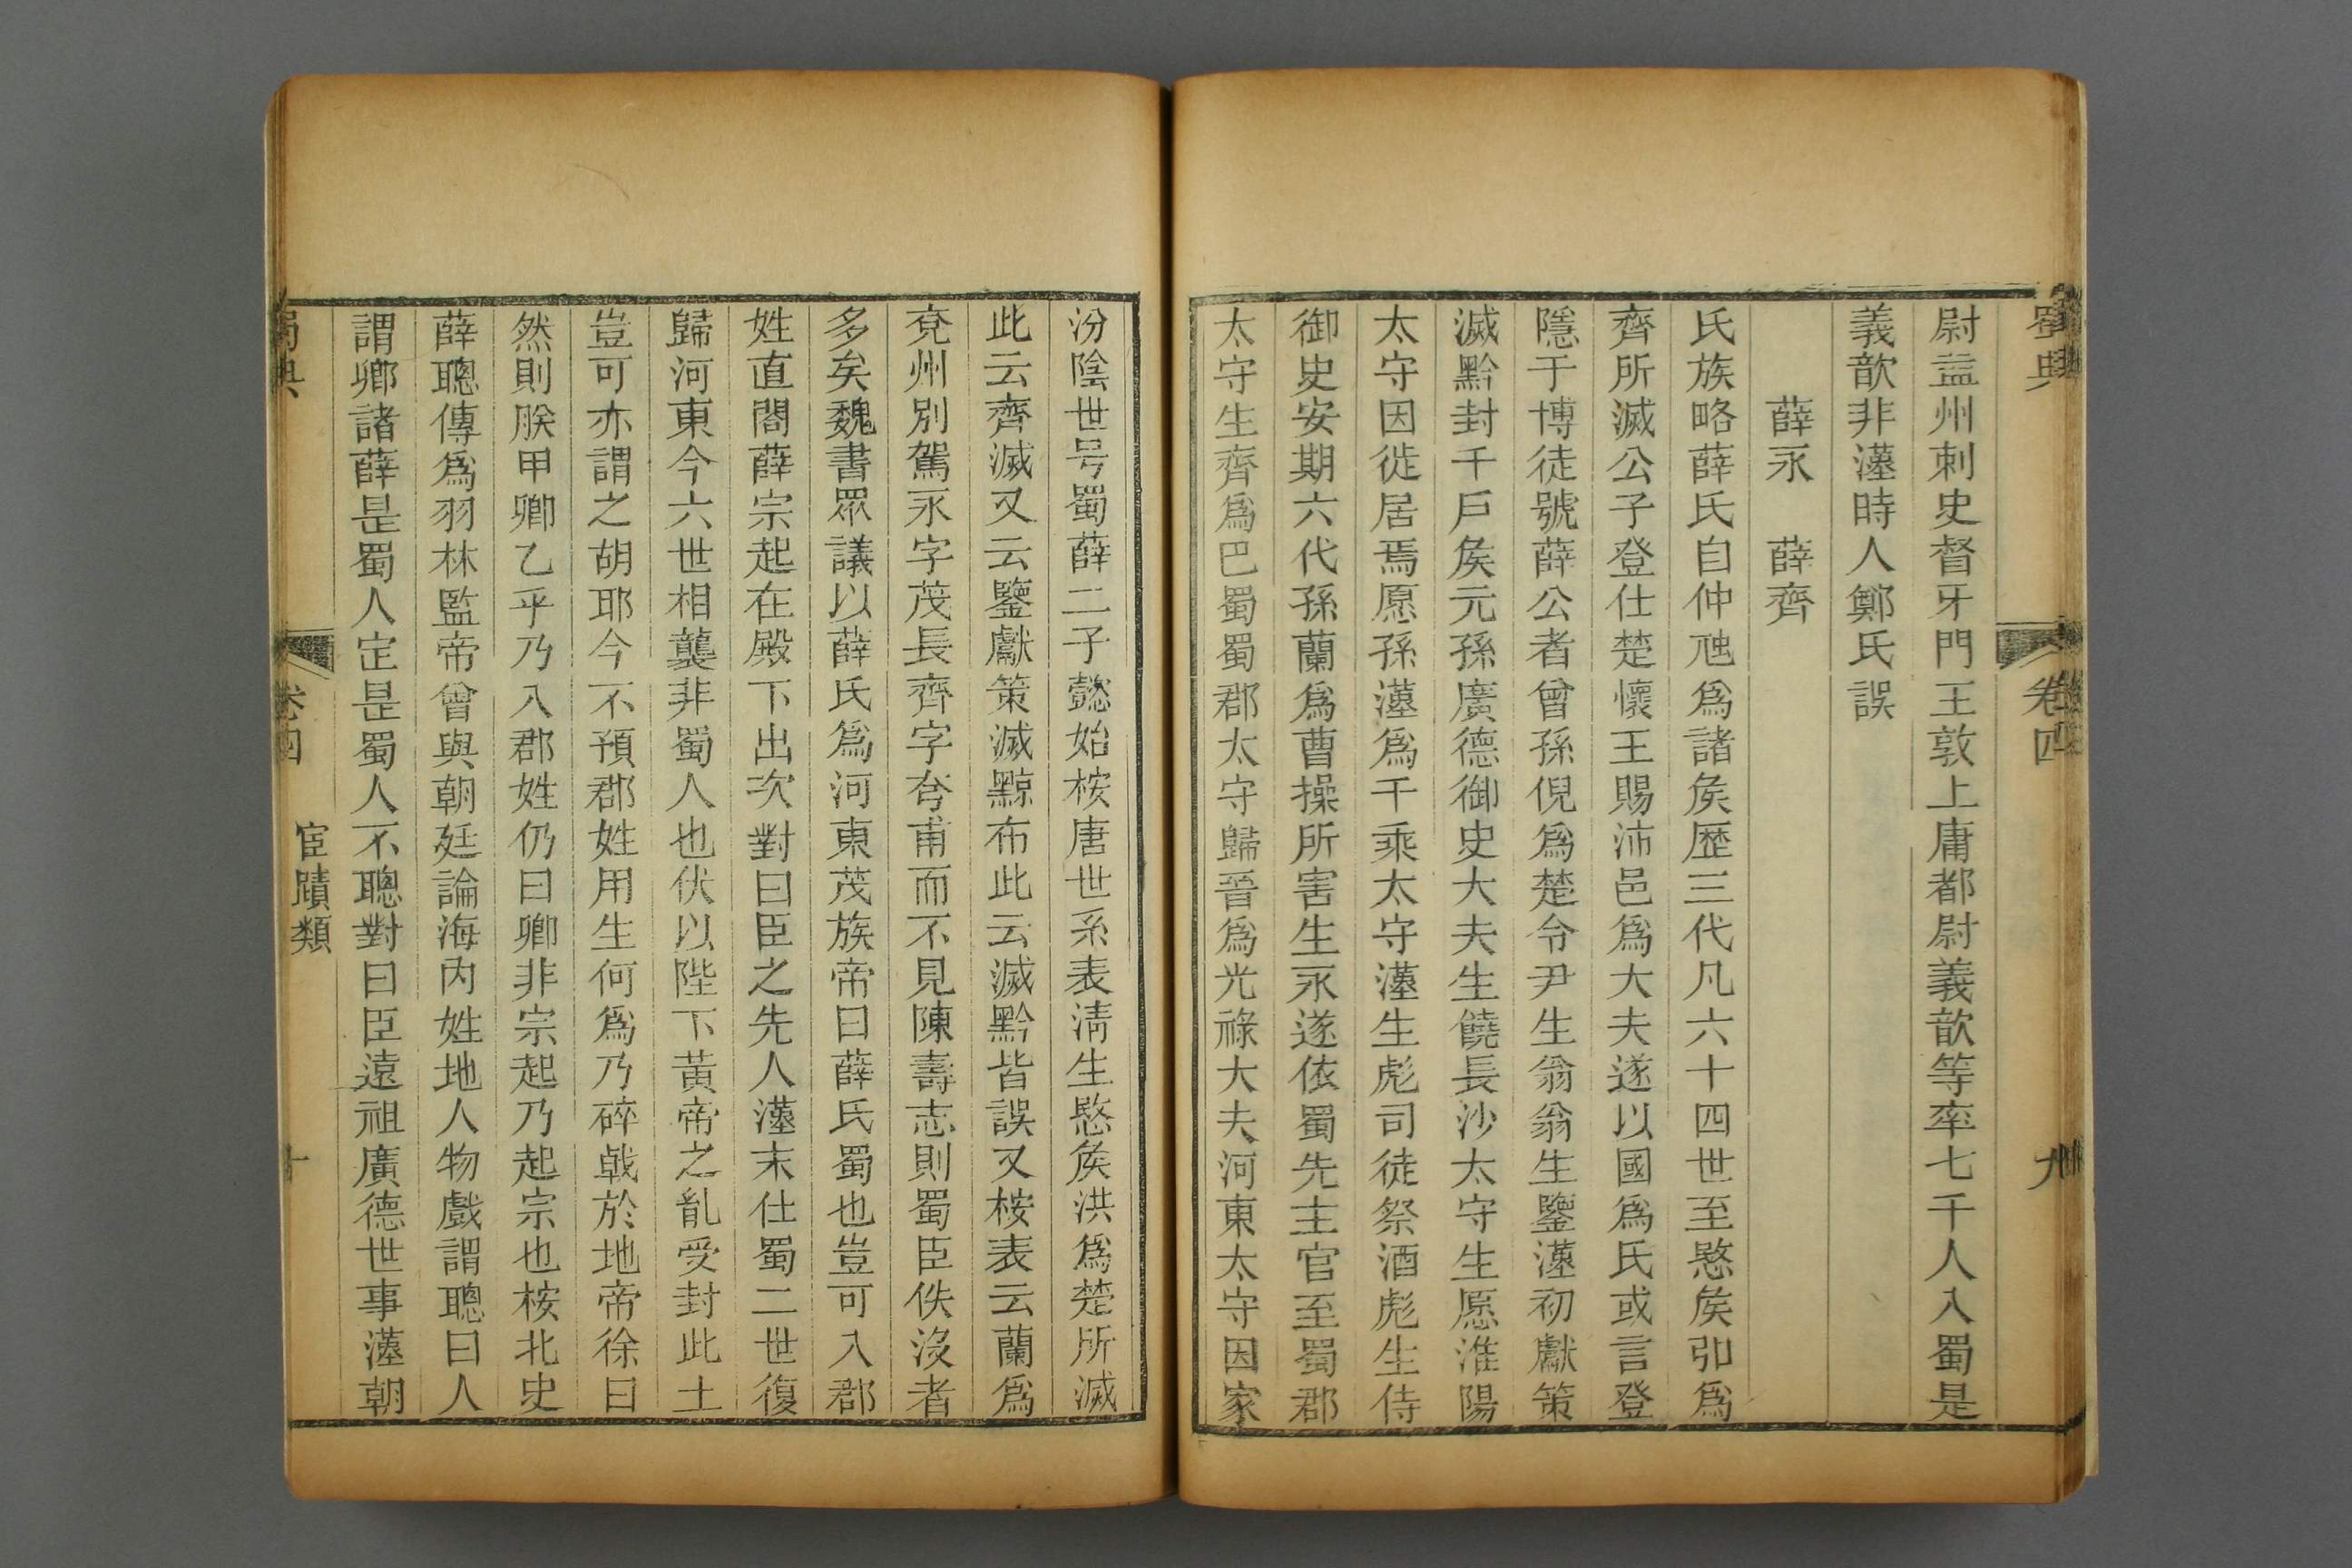 蜀典
卷四
九
尉益州刺史督牙門王敦上庸都尉義歆等率七千人入蜀是
義歆非漢時人鄭氏誤
薛永　薛齊
氏族略薛氏自仲虺爲諸矦歷三代凡六十四世至愍矦弘爲
齊所滅公子登仕楚懷王賜沛邑爲大夫遂以國爲氏或言登
隱于博徒號薛公者曾孫倪爲楚令尹生翁翁生鑒漢初獻策
滅黔封千戶矦元孫廣德御史大夫生饒長沙太守生愿淮陽
太守因徙居焉愿孫漢爲千乘太守漢生彪司徒祭酒彪生侍
御史安期六代孫蘭爲曹操所害生永遂依蜀先主官至蜀郡
太守生齊爲巴蜀蜀郡太守歸晉爲光祿大夫河東太守因家
汾陰世号蜀薛二子懿始桉唐世系表淸生愍矦洪爲楚所滅
此云齊滅又云鑒獻策滅黥布此云滅黔皆誤又桉表云蘭爲
兗州別駕永字茂長齊字夸甫而不見陳壽志則蜀臣佚沒者
多矣魏書眾議以薛氏爲河東茂族帝曰薛氏蜀也豈可入郡
姓直閤薛宗起在殿下出次對曰臣之先人漢末仕蜀二世復
歸河東今六世相襲非蜀人也伏以陛下黃帝之亂受封此土
豈可亦謂之胡耶今不預郡姓用生何爲乃碎戟於地帝徐曰
然則朕甲卿乙乎乃入郡姓仍曰卿非宗起乃起宗也桉北史
薛聰傳爲羽林監帝曾與朝廷論海內姓地人物戲謂聰曰人
謂卿諸薛是蜀人定是蜀人不聰對曰臣遠祖廣德世事漢朝
蜀典
卷四
宦蹟類
十